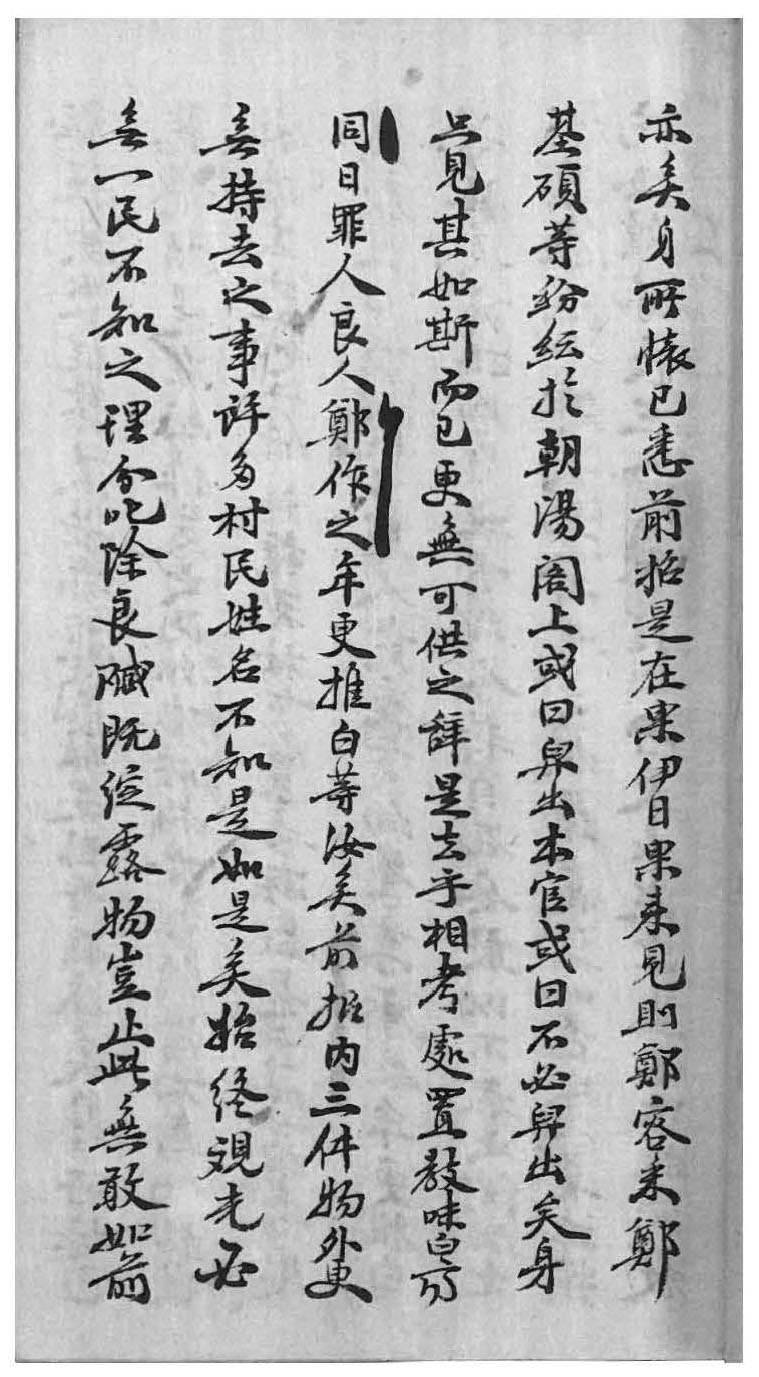 亦矣身所懷已悉前招是在果伊日果來見則鄭客來鄭
基碩等紛紜於朝陽閣上或曰舁出本官或曰不必舁出矣身
只見其如斯而已更無可供之辭是去乎相考處置敎味白齊
同日罪人良人鄭作之年更推白等汝矣前招內三件物外更
無持去之事許多村民姓名不知是如是矣始終覭
無一民不知之理分叱除良贓既綻露物豈止此無敢如前